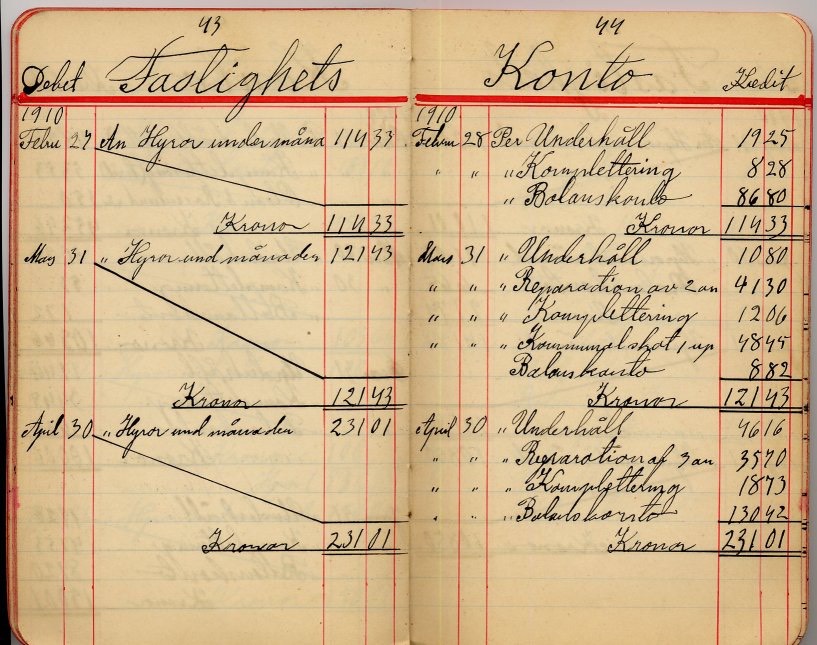 43
Debet Fastighets
1910
Febru 27 An Hyror under måna 114 33
Kronor 114 33
Mars 31 " Hyror und månaden 121 43
Kronor 121 43
April 30 " Hyror und månaden 231 01
Kronor 231 01
44
Konto Kredit
1910
Februa 28 Per Underhåll 19 25
" " " Komplettering 8 28
" Balanskonto 86 80
Kronor 114 33
Mars 31 " Underhåll 10 80
" " " Reparation av 2 an 41 30
" " " Komplettering 12 06
" " " Kommunalskat 1 up 48 45
Balanskonto 8 82
Kronor 121 43
April 30 " Underhåll 46 16
" " " Reparation af 3 an 35 70
" " " Komplettering 18 73
" " " Balanskonto 130 42
Kronor 231 01